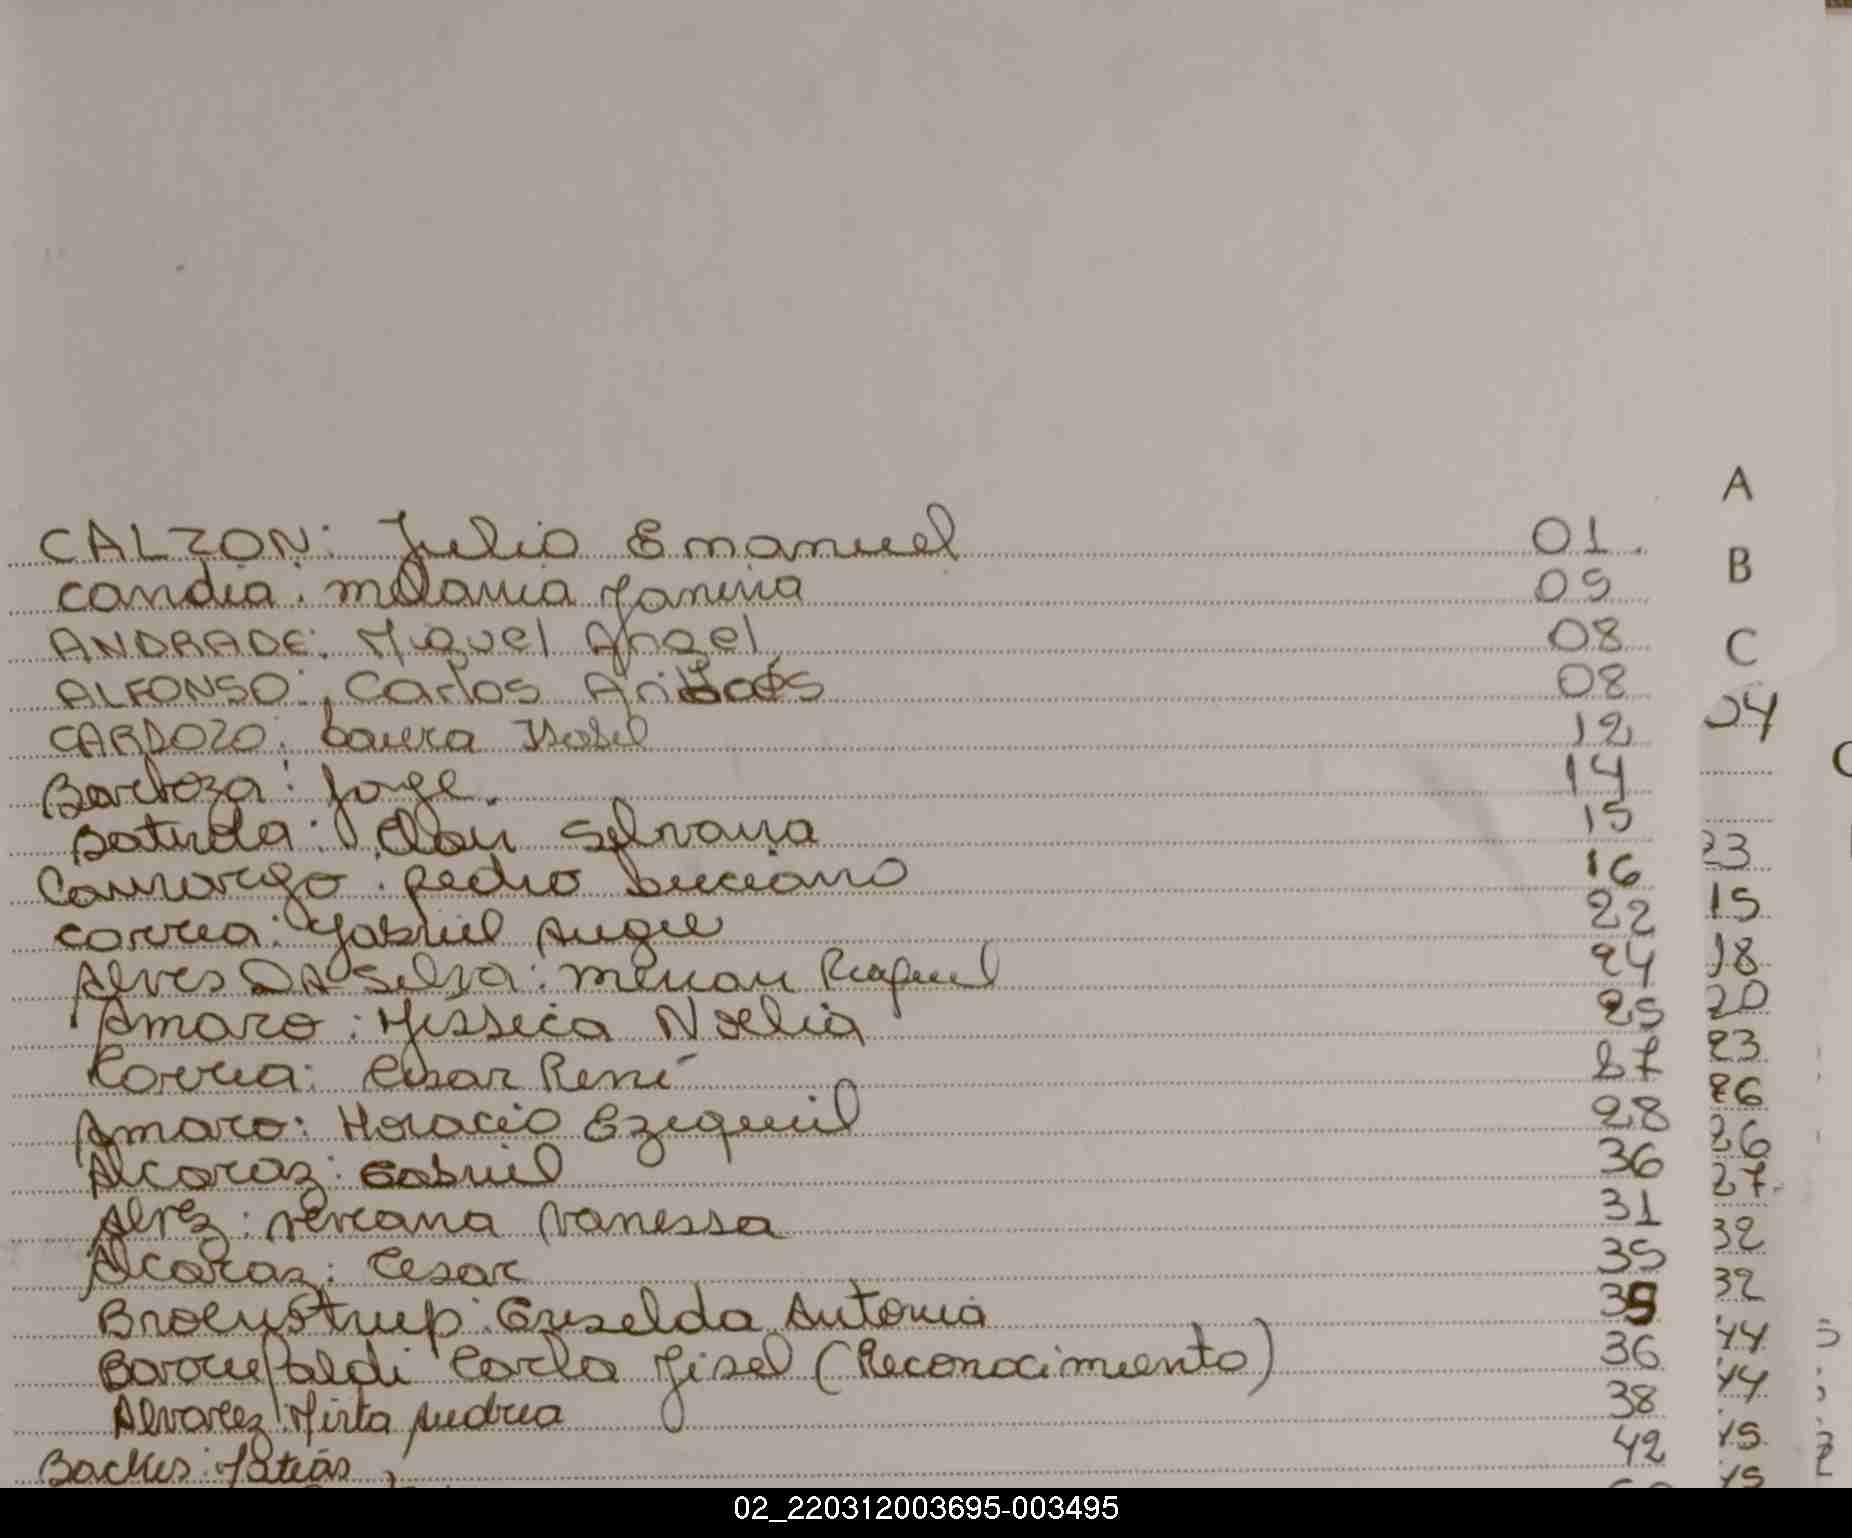 A
CALZON: Julio Emanuel 01.
B
Candia: Melania Yanina 05
ANDRADE: Miguel Angel 08
C
ALFONSO: Carlos 08
04
CARDOZO: Laura Isabel 12
Barboza: Jorge. 14
Batirda: Silvana 15
23
Camargo: Pedro Luciano 16
15
Correa: Gabriel Angel 22
18
Alves DA Silva: Mirian Raquel 24
20
Amaro: Yéssica Noelia 25
23
Correa: Cesar René 27
26
Amaro: Horacio Ezequiel 28
26
Alcaraz: Gabriel 36
27
Alvez: Viviana Vanessa 31
32
Alcaraz: Cesar 35
32
Broenstrup: Griselda Antonia 35
44
Barrufaldi Carla Jisel (Reconocimiento) 36
44
Alvarez: Mirta Andrea 38
45
Backes: Matías 42
45
02_220312003695-003495